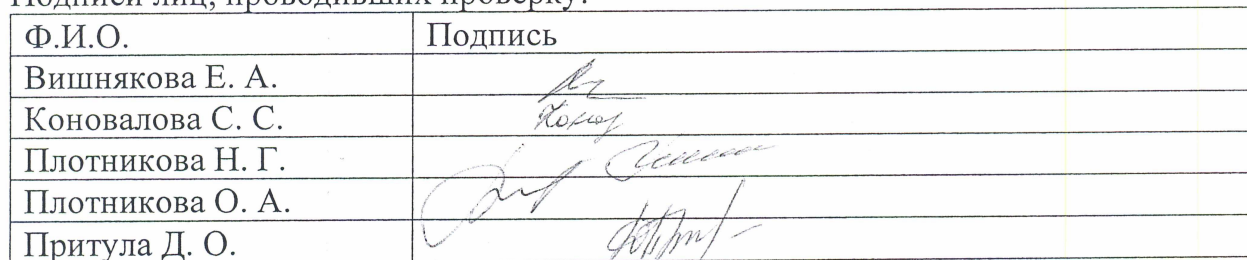 Подписи лиц, проводивших проверку:
Ф.И.О. Подпись
Вишнякова Е. А.
Коновалова С. С.
Плотникова Н. Г.
Плотникова О. А.
Притула Д. О.